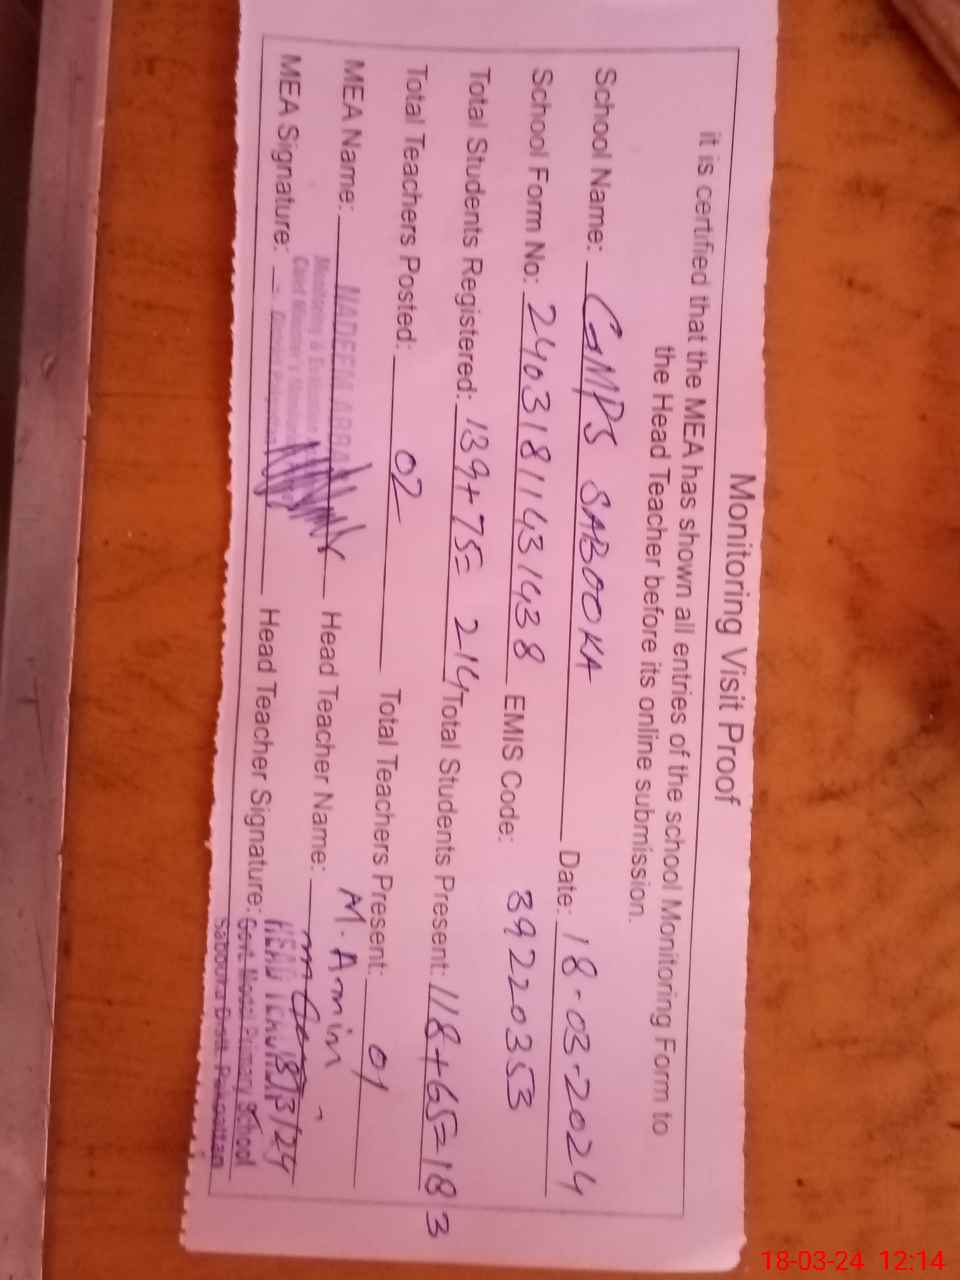 Monitoring Visit Proof
it is certified that the MEA has shown all entries of the school Monitoring Form to
the Head Teacher before its online submission.
School Name: GMPS SABOOKA Date: 18-03-2024
School Form No: 24031811431438 EMIS Code: 39220353
Total Students Registered: 139+75= 214 Total Students Present: 118+65=183
Total Teachers Posted: 02 Total Teachers Present: 01
MEA Name: NADEEM ABBAS Head Teacher Name: M. Amin
Monitoring &
MEA Signature: Head Teacher Signature:
HEAD TEACHER
18/3/24
Govt. Model Primary School
Sabooka Distt. Pakpattan
18-03-24 12:14